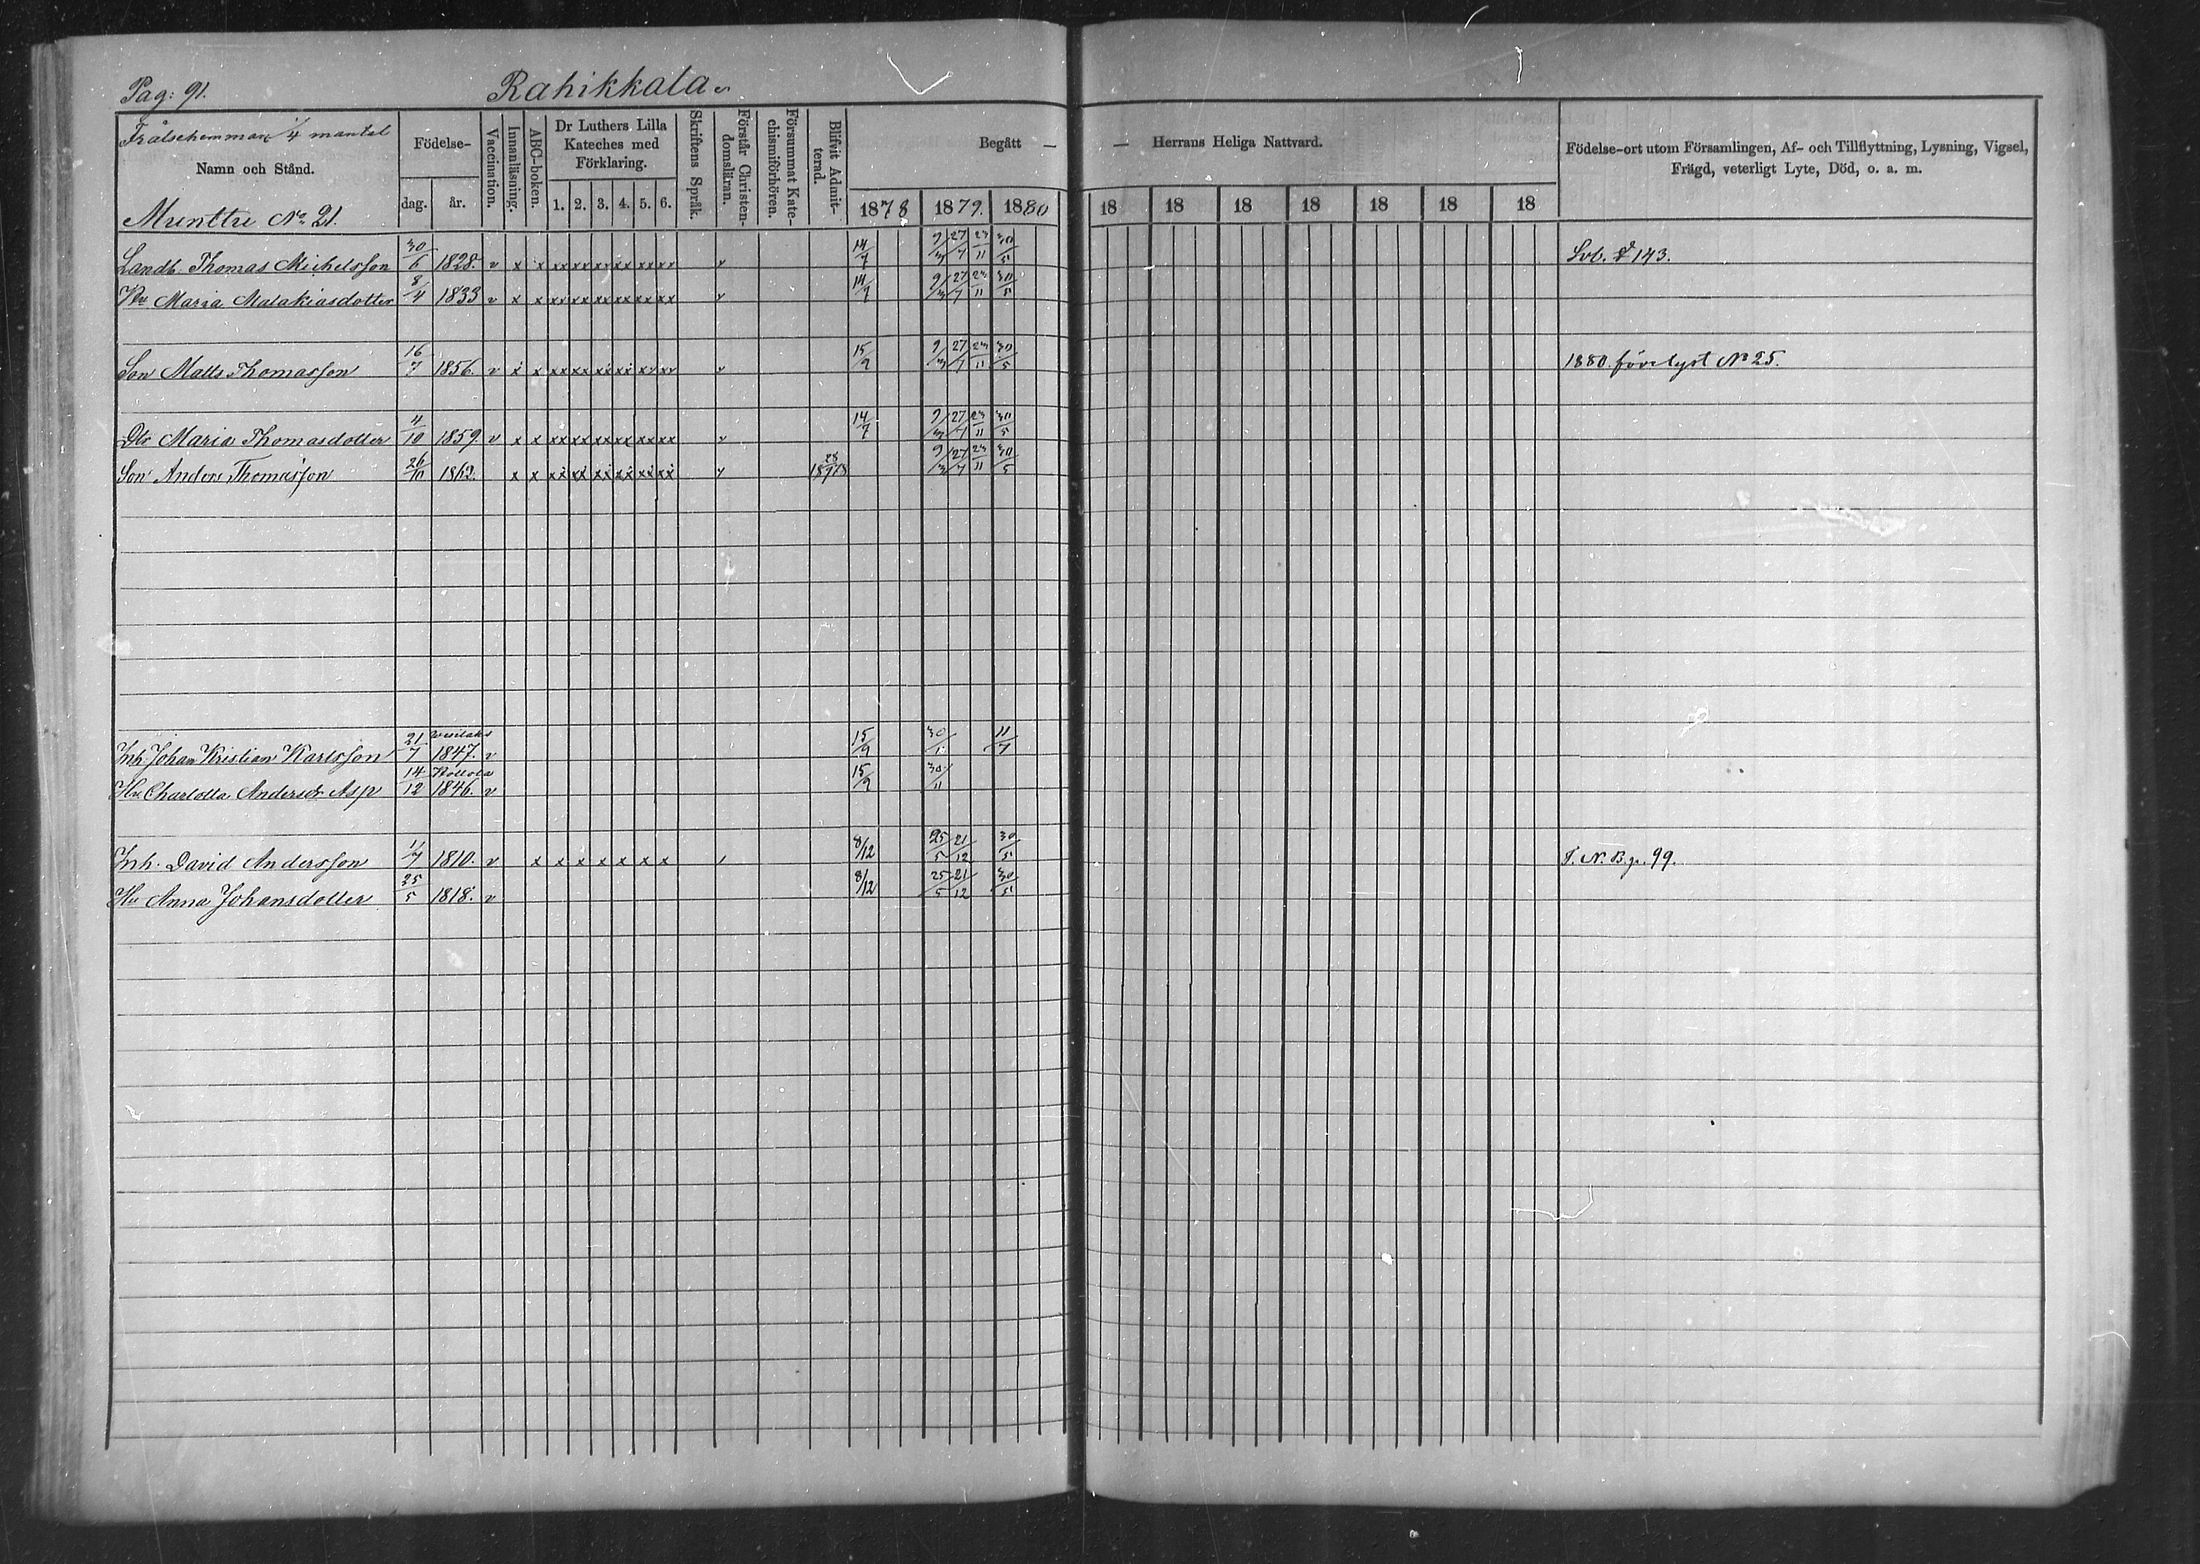 Pag: 91.
Rahikkala.
Frälsehemman 1/4 mantal
Namn och Stånd.
Munttu No 21.
Födelse-
dag. år.
Vaccination.
Innanläsning.
ABC-boken.
Dr Luthers Lilla
Kateches med
Förklaring.
1. 2. 3. 4. 5. 6.
Skriftens Språk.
Förstår Christen-
domsläran.
Försummat Kate-
chismiförhören.
Blifvit Admit-
terad.
Begått — — Herrans Heliga Nattvard.
1878 1879. 1880 18 18 18 18 18 18 18
Födelse-ort utom Församlingen, Af- och Tillflyttning, Lysning, Vigsel,
Frägd, veterligt Lyte, Död, o. a. m.
Landb. Thomas Michelsson 30/6 1828. v x x xx xx xx xx xx xx v 14/7 9/3 27/7 23/11 30/5 143.
Hu Maria Malakiasdotter 8/4 1833 v x x xx xx xx xx xx xx v 14/7 9/3 27/7 23/11 30/5
Son Matts Thomasson 16/7 1856. v x x xx xx xx xx xx xx v 15/9 9/3 27/7 23/11 30/5 1880 förelyst No 25.
Dtr Maria Thomasdotter 4/10 1859. v x x xx xx xx xx xx xx v 14/7 9/3 27/7 23/11 30/5
Son Anders Thomasson 26/11 1862. x x xx xx xx xx xx xx v 9/3 27/7 23/11 30/5
Inh. Johan Kristian Karlsson 21/7 Vesilaks 1847. v 15/9 30/11 11/7
Hu Charlotta Andersdr Asp 14/12 1846. v 15/9 30/11
Inh. David Andersson 11/7 1810. v x x x x x x x 8/12 25/5 21/12 30/5 T. N. B. p. 99.
Hu Anna Johansdotter 25/5 1818. v 8/12 25/5 21/12 30/5